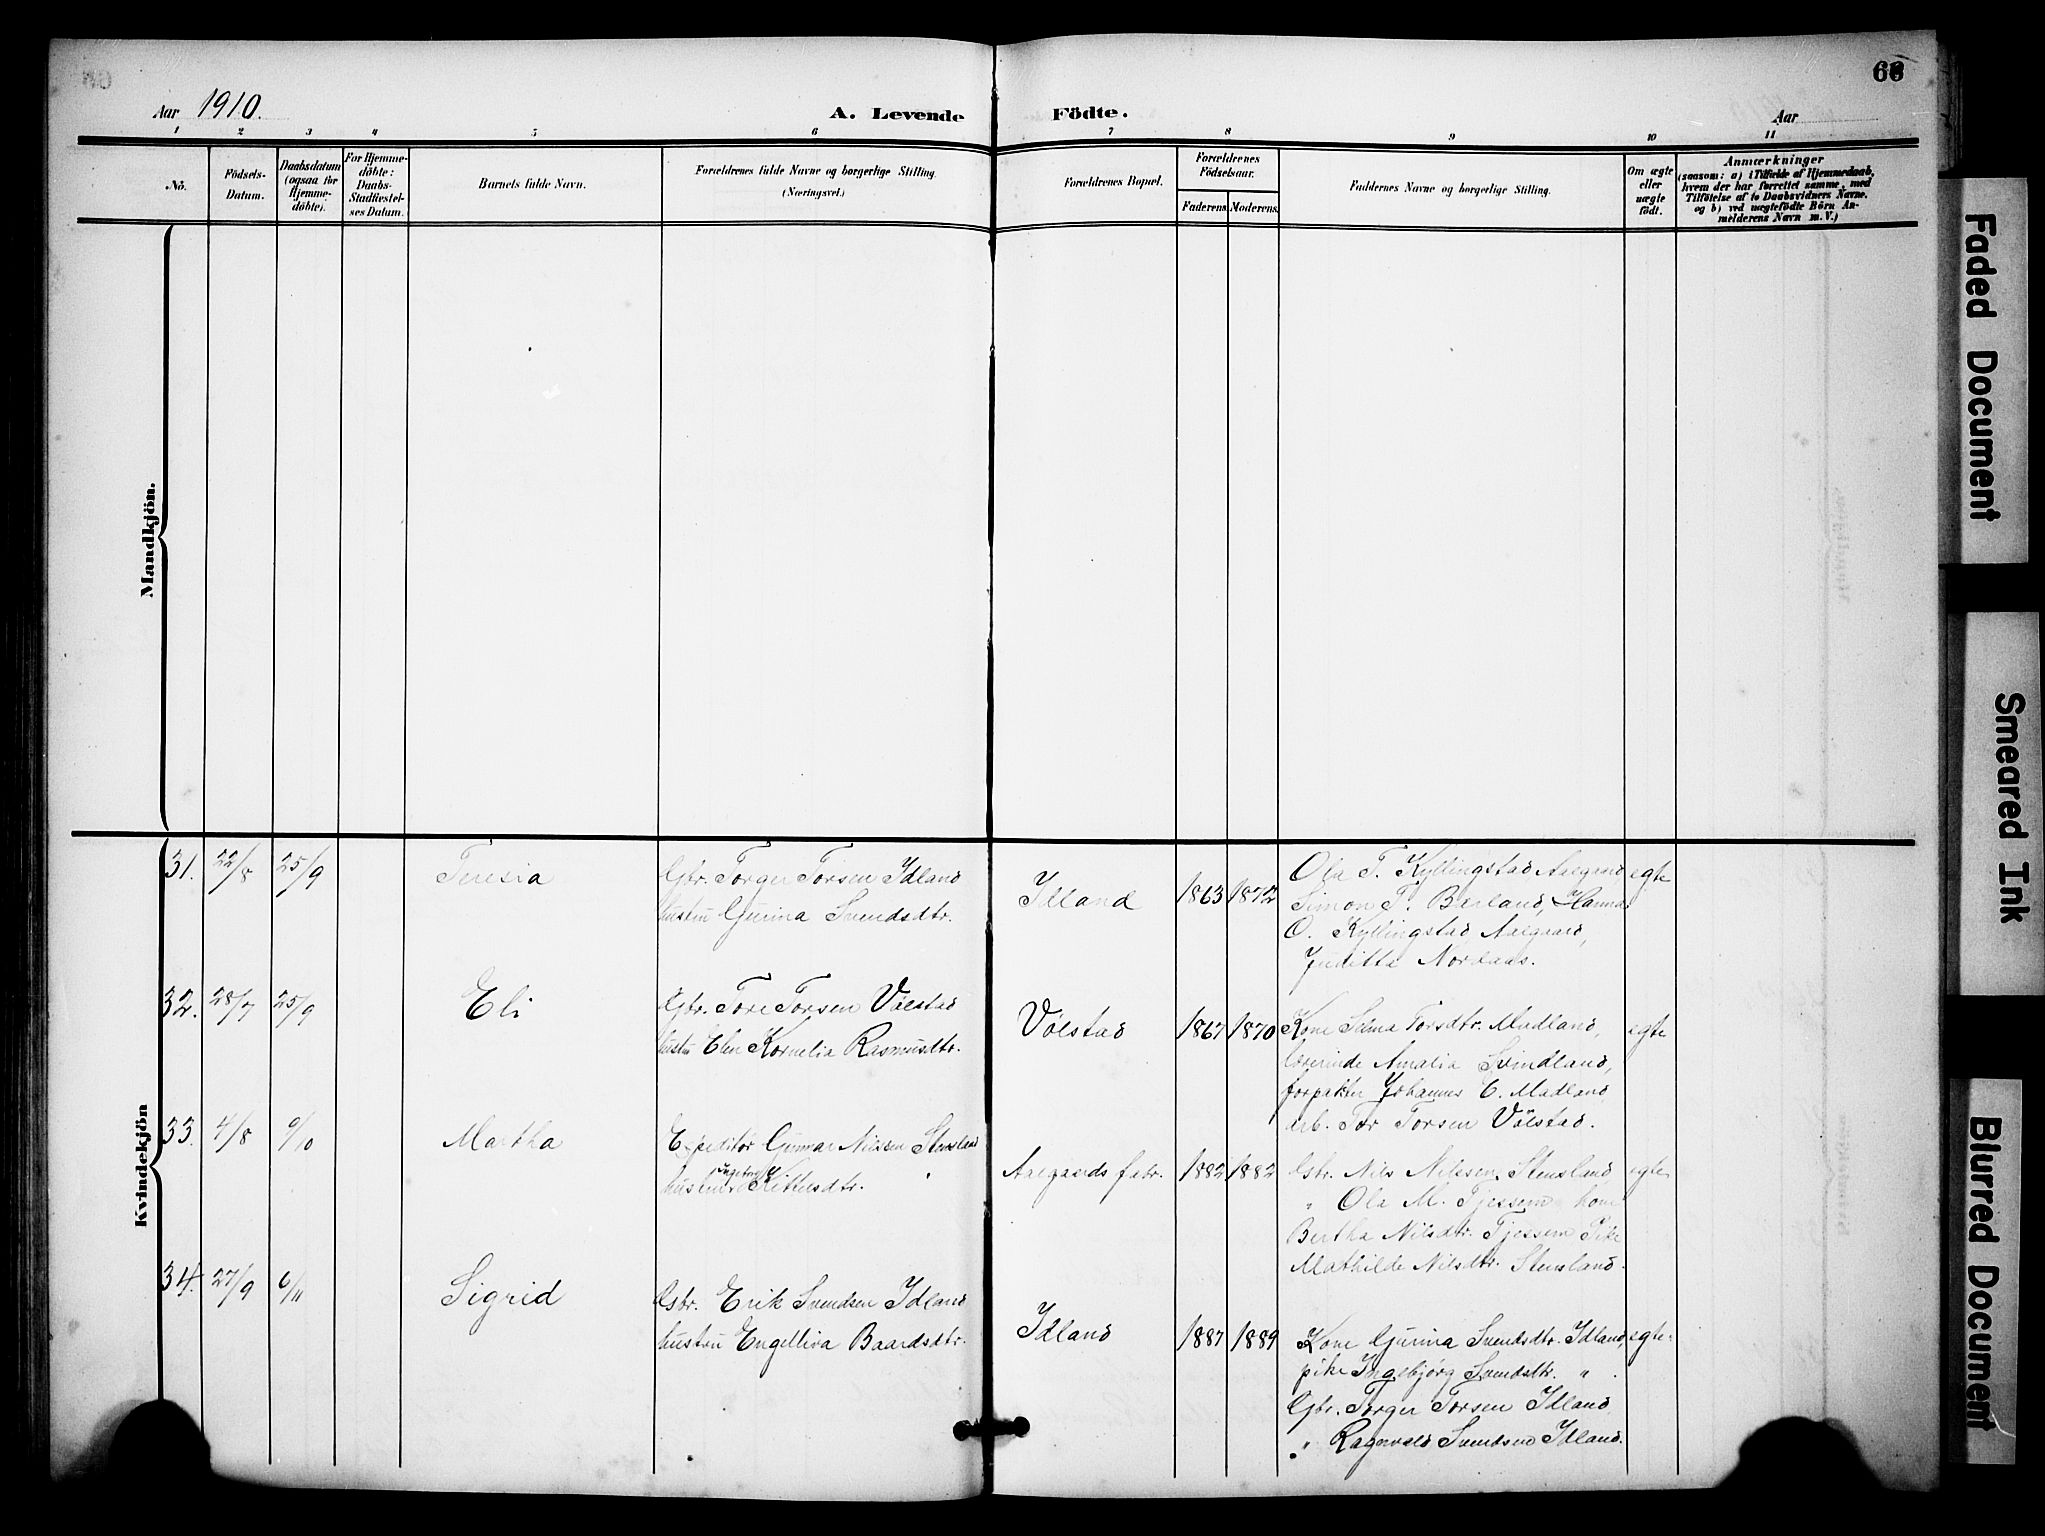 66
Aar 1910.
A. Levende Födte.
Aar
1 2 3 4 5 6 7 8 9 10 11
No.
Födsels-
Datum.
Daabsdatum
(ogsaa for
Hjemme-
döbte).
For Hjemme-
döbte:
Daabs-
Stadfæstel-
ses Datum.
Barnets fulde Navn.
Forældrenes fulde Navne og borgerlige Stilling.
(Næringsvei.)
Forældrenes Bopæl.
Forældrenes
Födselsaar.
Faderens. Moderens.
Faddernes Navne og borgerlige Stilling.
Om ægte
eller
uægte
födt.
Anmærkninger
(saasom: a) i Tilfælde af Hjemmedaab,
hvem der har forrettet samme, med
Tilföielse af to Daabsvidners Navne,
og b) ved uægtefödte Börn An-
melderens Navn m. V.)
Mandkjön.
Kvindekjön
31. 22/8 25/9 Teresia
Gbr. Torger Torsen Idland
hustru Gurina Svendsdtr.
Idland 1863 1872
Ola T. Kyllingstad Aalgaard
Simon T. Berland, Hanna
O. Kyllingstad Aalgaard,
Juditta Nordaas.
egte
32. 28/7 25/9 Eli
Gbr. Tore Torsen Völstad
hustru Elen Kornelia Rasmusdtr.
Völstad 1867 1870
Kone Selma Torsdtr. Madland,
lærerinde Amalia Svindland,
forpakter Johannes E. Madland
arb. Tor Torsen Völstad.
egte
33. 4/8 9/10 Martha
Expeditör Gunnar Nilssen Stensland
hustru Ingeborg Kittilsdtr. "
Aalgaards fabr. 1882 1882
Gbr. Nils Nilssen Stensland
" Ola M. Tjessem kone
Bertha Nilsdtr. Tjessem Pike
Mathilde Nilsdtr. Stensland.
egte
34. 27/9 6/11 Sigrid
Gbr. Erik Svendsen Idland
hustru Engelliva Baardsdtr.
Idland 1887 1889
Kone Gurina Svendsdtr. Idland,
pike Ingebjörg Svendsdtr. "
Gbr. Torger Torsen Idland
" Ragnvald Svendsen Idland.
egte
Faded Document
Smeared Ink
Blurred Document